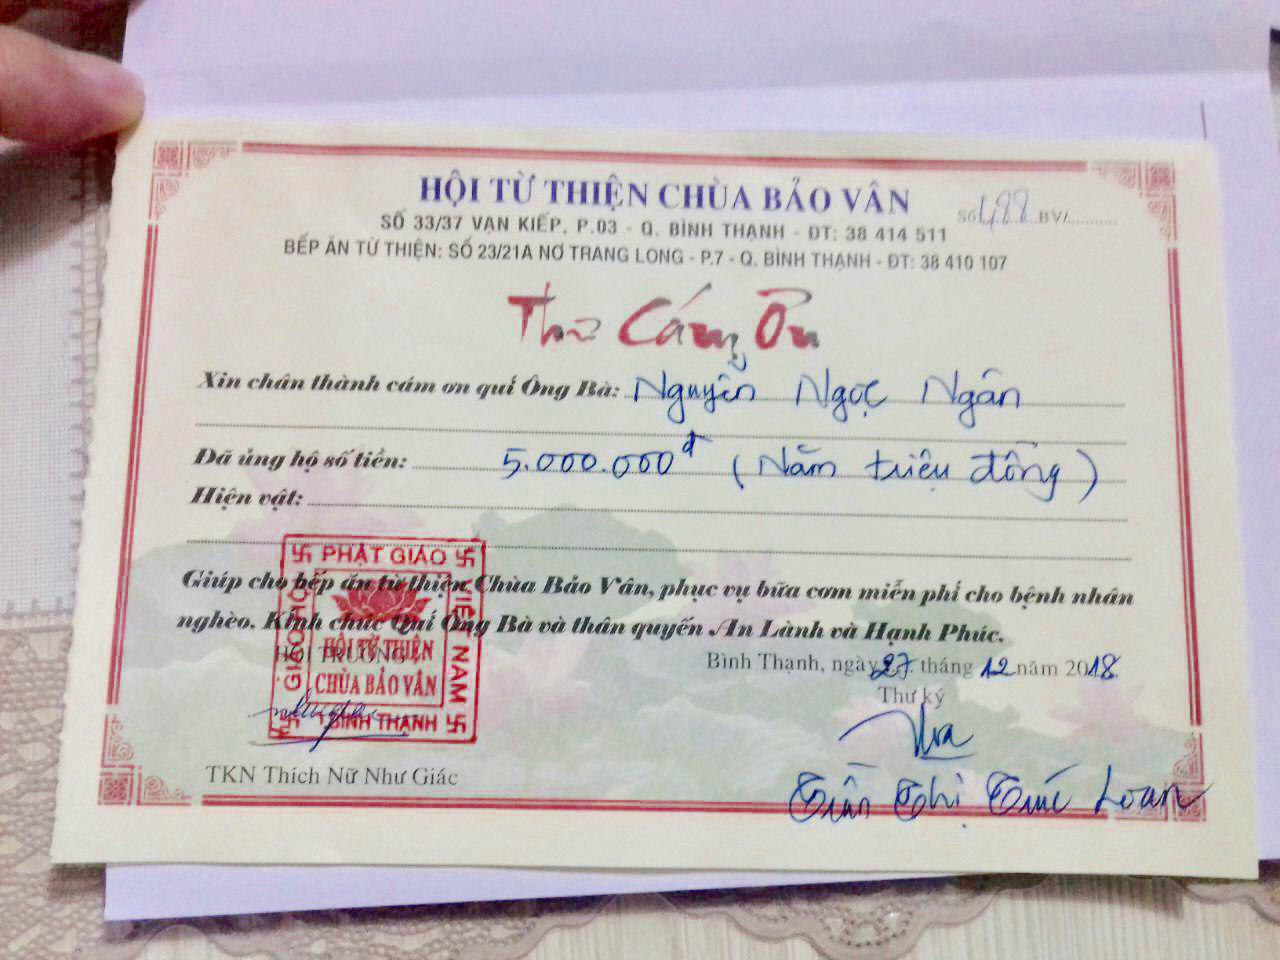 HỘI TỪ THIỆN CHÙA BẢO VÂN
Số 488 BV/..........
SỐ 33/37 VẠN KIẾP, P.03 - Q. BÌNH THẠNH - ĐT: 38 414 511
BẾP ĂN TỪ THIỆN: SỐ 23/21A NƠ TRANG LONG - P.7 - Q. BÌNH THẠNH - ĐT: 38 410 107
Thư Cám Ơn
Xin chân thành cám ơn quí Ông Bà: Nguyễn Ngọc Ngân
Đã ủng hộ số tiền: 5.000.000đ (Năm triệu đồng)
Hiện vật:
Giúp cho bếp ăn từ thiện Chùa Bảo Vân, phục vụ bữa cơm miễn phí cho bệnh nhân
nghèo. Kính chúc Quí Ông Bà và thân quyến An Lành và Hạnh Phúc.
Bình Thạnh, ngày 27 tháng 12 năm 2018
HỘI TRƯỞNG
Thư ký
GIÁO HỘI
PHẬT GIÁO
VIỆT NAM
HỘI TỪ THIỆN
CHÙA BẢO VÂN
BÌNH THẠNH
TKN Thích Nữ Như Giác
Trần Thị Trúc Loan